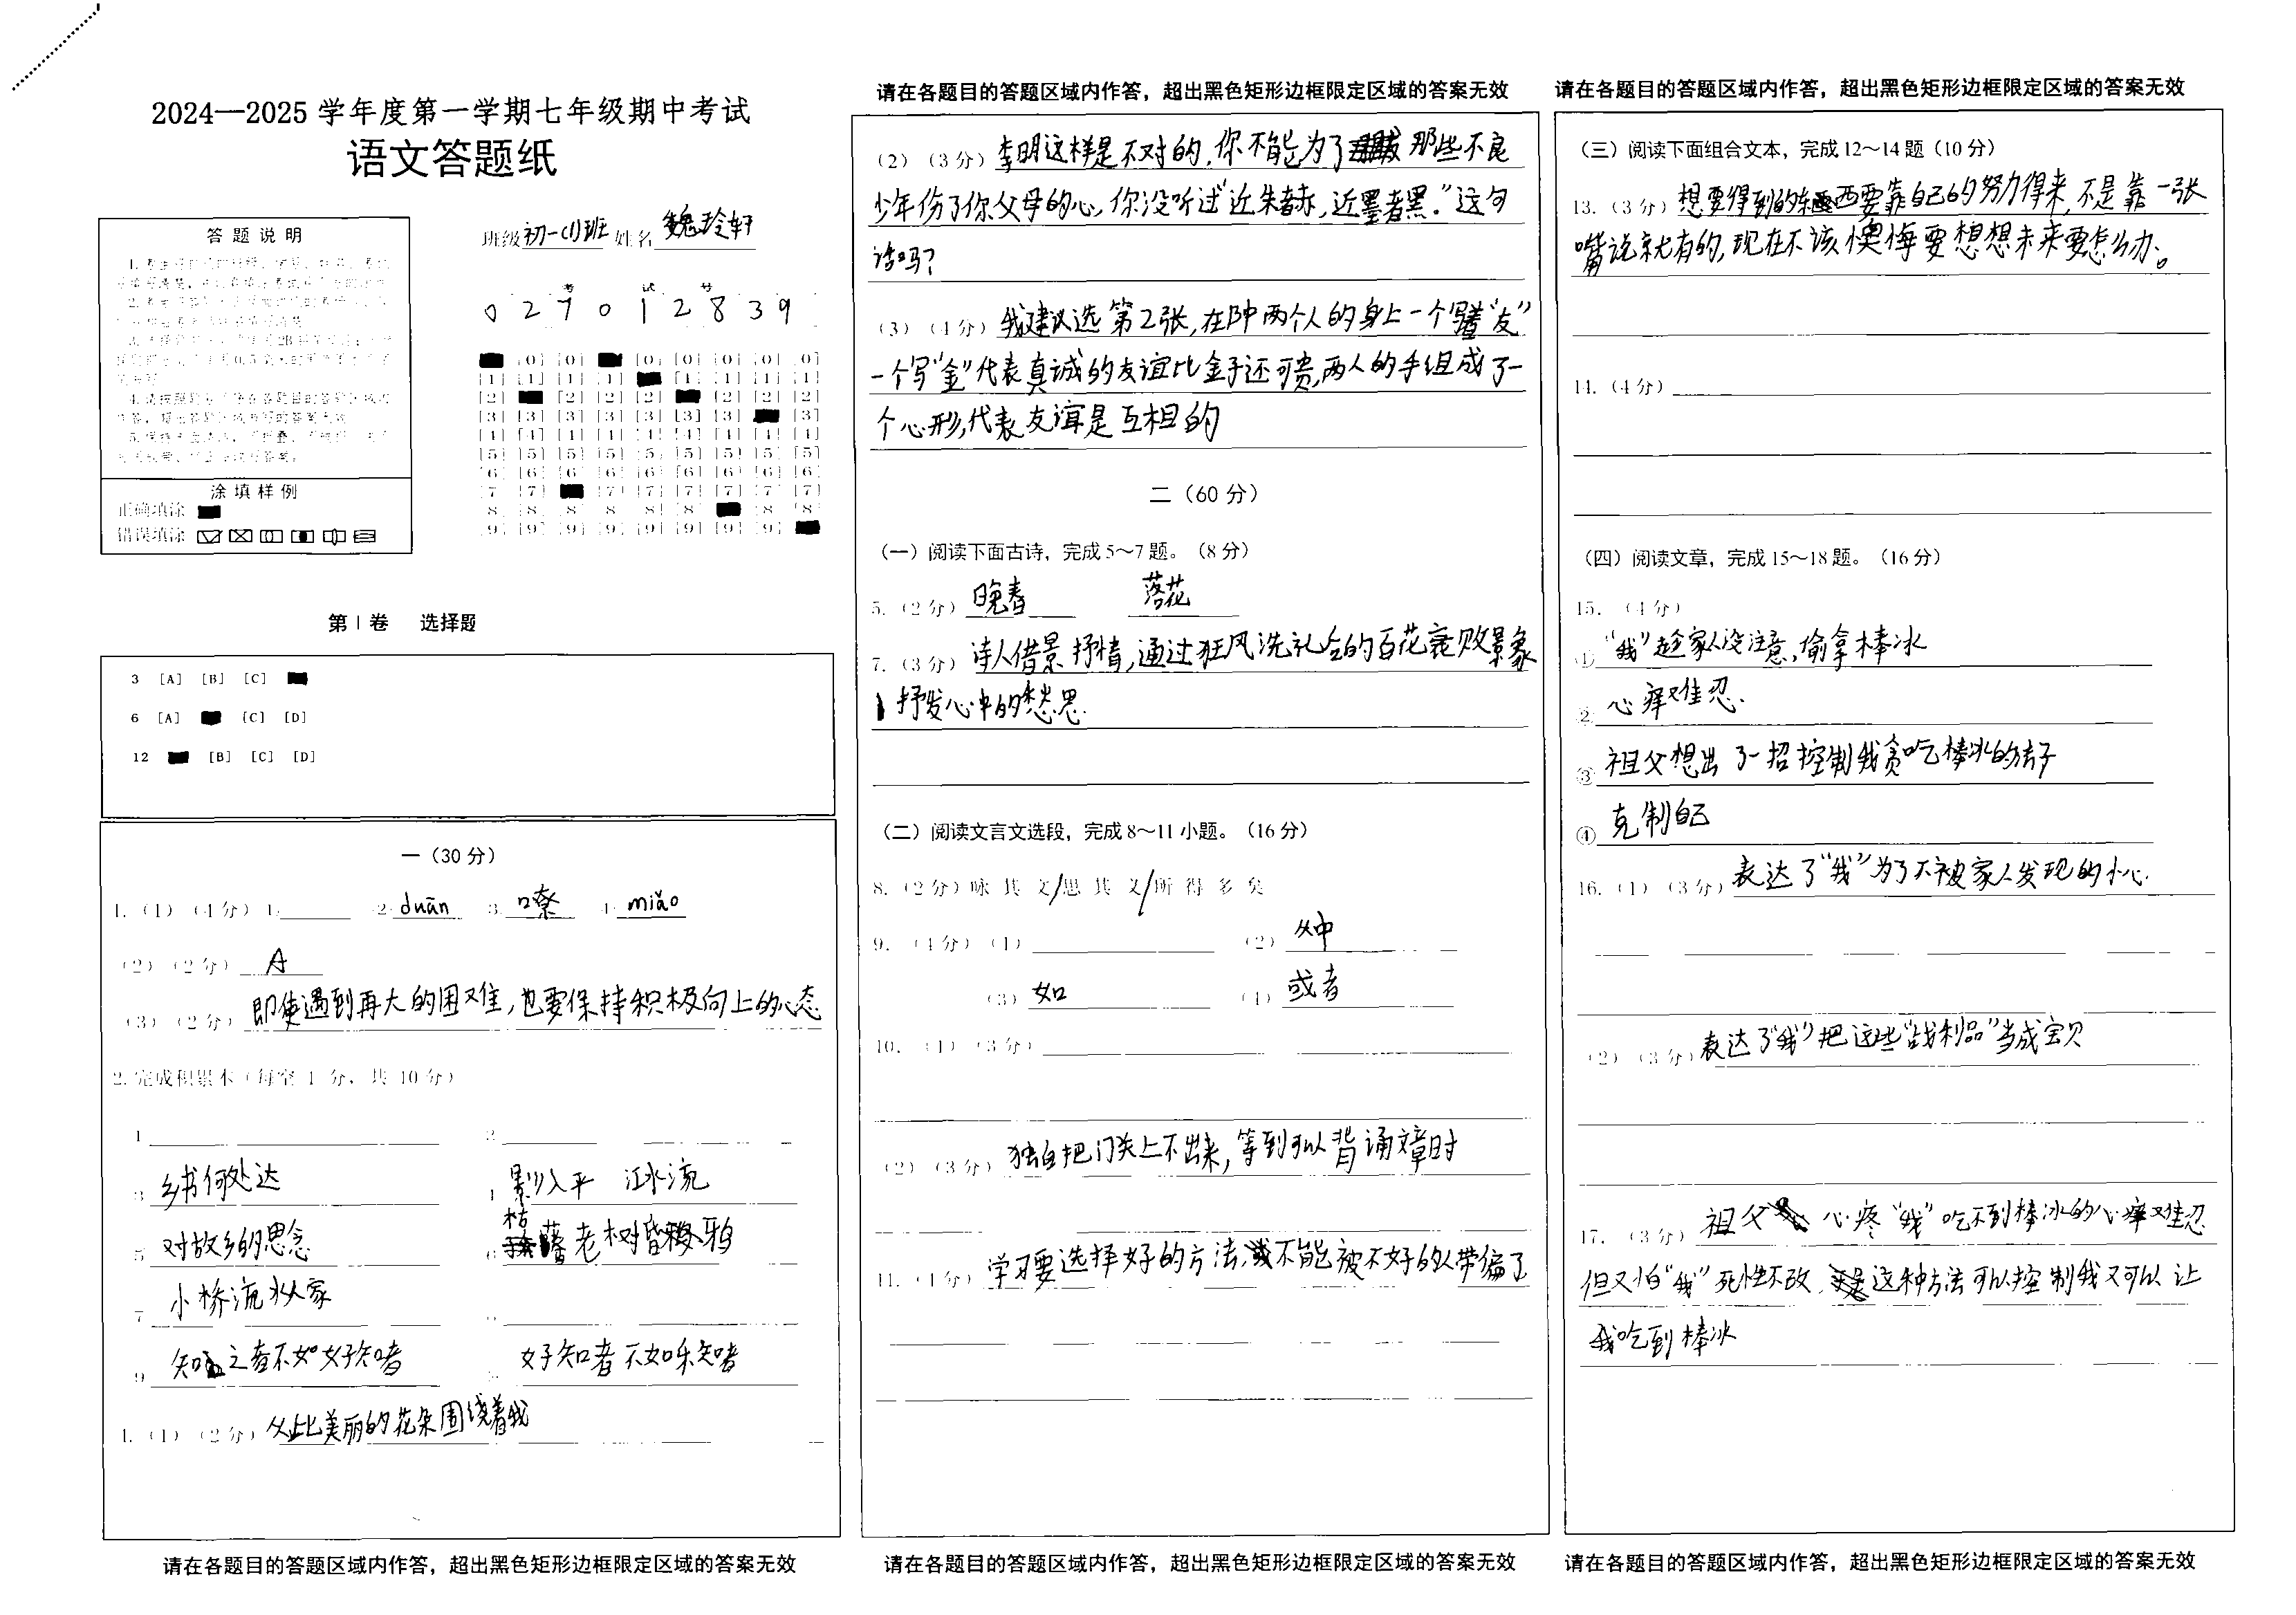 2024—2025 学年度第一学期七年级期中考试
语文答题纸
答 题 说 明
涂 填 样 例
正确填涂
错误填涂
班级 初一(1)班 姓名 魏玲轩
考 试 号
0 2 7 0 1 2 8 3 9
第 I 卷 选择题
3 [A] [B] [C]
6 [A] [C] [D]
12 [B] [C] [D]
一（30 分）
1.（1）（4分） 1. 2. duān 3. 嘹 4. miǎo
（2）（2分） A
（3）（2分） 即使遇到再大的困难，也要保持积极向上的心态
2. 完成积累本（每空 1 分，共 10 分）
1
2
3 乡书何处达
4 影入平 江水流
5 对故乡的思念
6 枯藤老树昏鸦
7 小桥流水人家
9 知之者不如好知者
好知者不如乐知者
4.（1）（2分） 从此美丽的花朵围绕着我
请在各题目的答题区域内作答，超出黑色矩形边框限定区域的答案无效
请在各题目的答题区域内作答，超出黑色矩形边框限定区域的答案无效
（2）（3分） 李明这样是不对的，你不能为了那些不良
少年伤了你父母的心，你没听过“近朱者赤，近墨者黑。”这句
话吗？
（3）（4分） 我建议选第2张，在图中两个人的身上一个写着“友”
一个写“金”代表真诚的友谊比金子还可贵，两人的手组成了一
个心形，代表友谊是互相的
二（60 分）
（一）阅读下面古诗，完成 5～7 题。（8 分）
5.（2分） 晚春 落花
7.（3分） 诗人借景抒情，通过狂风洗礼后的百花衰败景象
抒发心中的愁思.
（二）阅读文言文选段，完成 8～11 小题。（16 分）
8.（2分）咏 其 文/思 其 义/所 得 多 矣
9.（4分）（1） （2） 从中
（3） 如 （4） 或者
10.（1）（3分）
（2）（3分） 独自把门关上不出来，等到可以背诵文章时
11.（4分） 学习要选择好的方法，不能被不好的人带偏了
请在各题目的答题区域内作答，超出黑色矩形边框限定区域的答案无效
请在各题目的答题区域内作答，超出黑色矩形边框限定区域的答案无效
（三）阅读下面组合文本，完成 12～14 题（10 分）
13.（3分） 想要得到的东西要靠自己的努力得来，不是靠一张
嘴说就有的，现在不该懊悔要想想未来要怎么办。
14.（4分）
（四）阅读文章，完成 15～18 题。（16 分）
15.（4分）
① “我”趁家人没注意，偷拿棒冰
② 心痒难忍.
③ 祖父想出了一招控制我贪吃棒冰的法子
④ 克制自己
16.（1）（3分） 表达了“我”为了不被家人发现的小心.
（2）（3分） 表达了“我”把这些“战利品”当成宝贝
17.（3分） 祖父心疼“我”吃不到棒冰的心痒难忍
但又怕“我”死性不改，这种方法可以控制我又可以让
我吃到棒冰
请在各题目的答题区域内作答，超出黑色矩形边框限定区域的答案无效